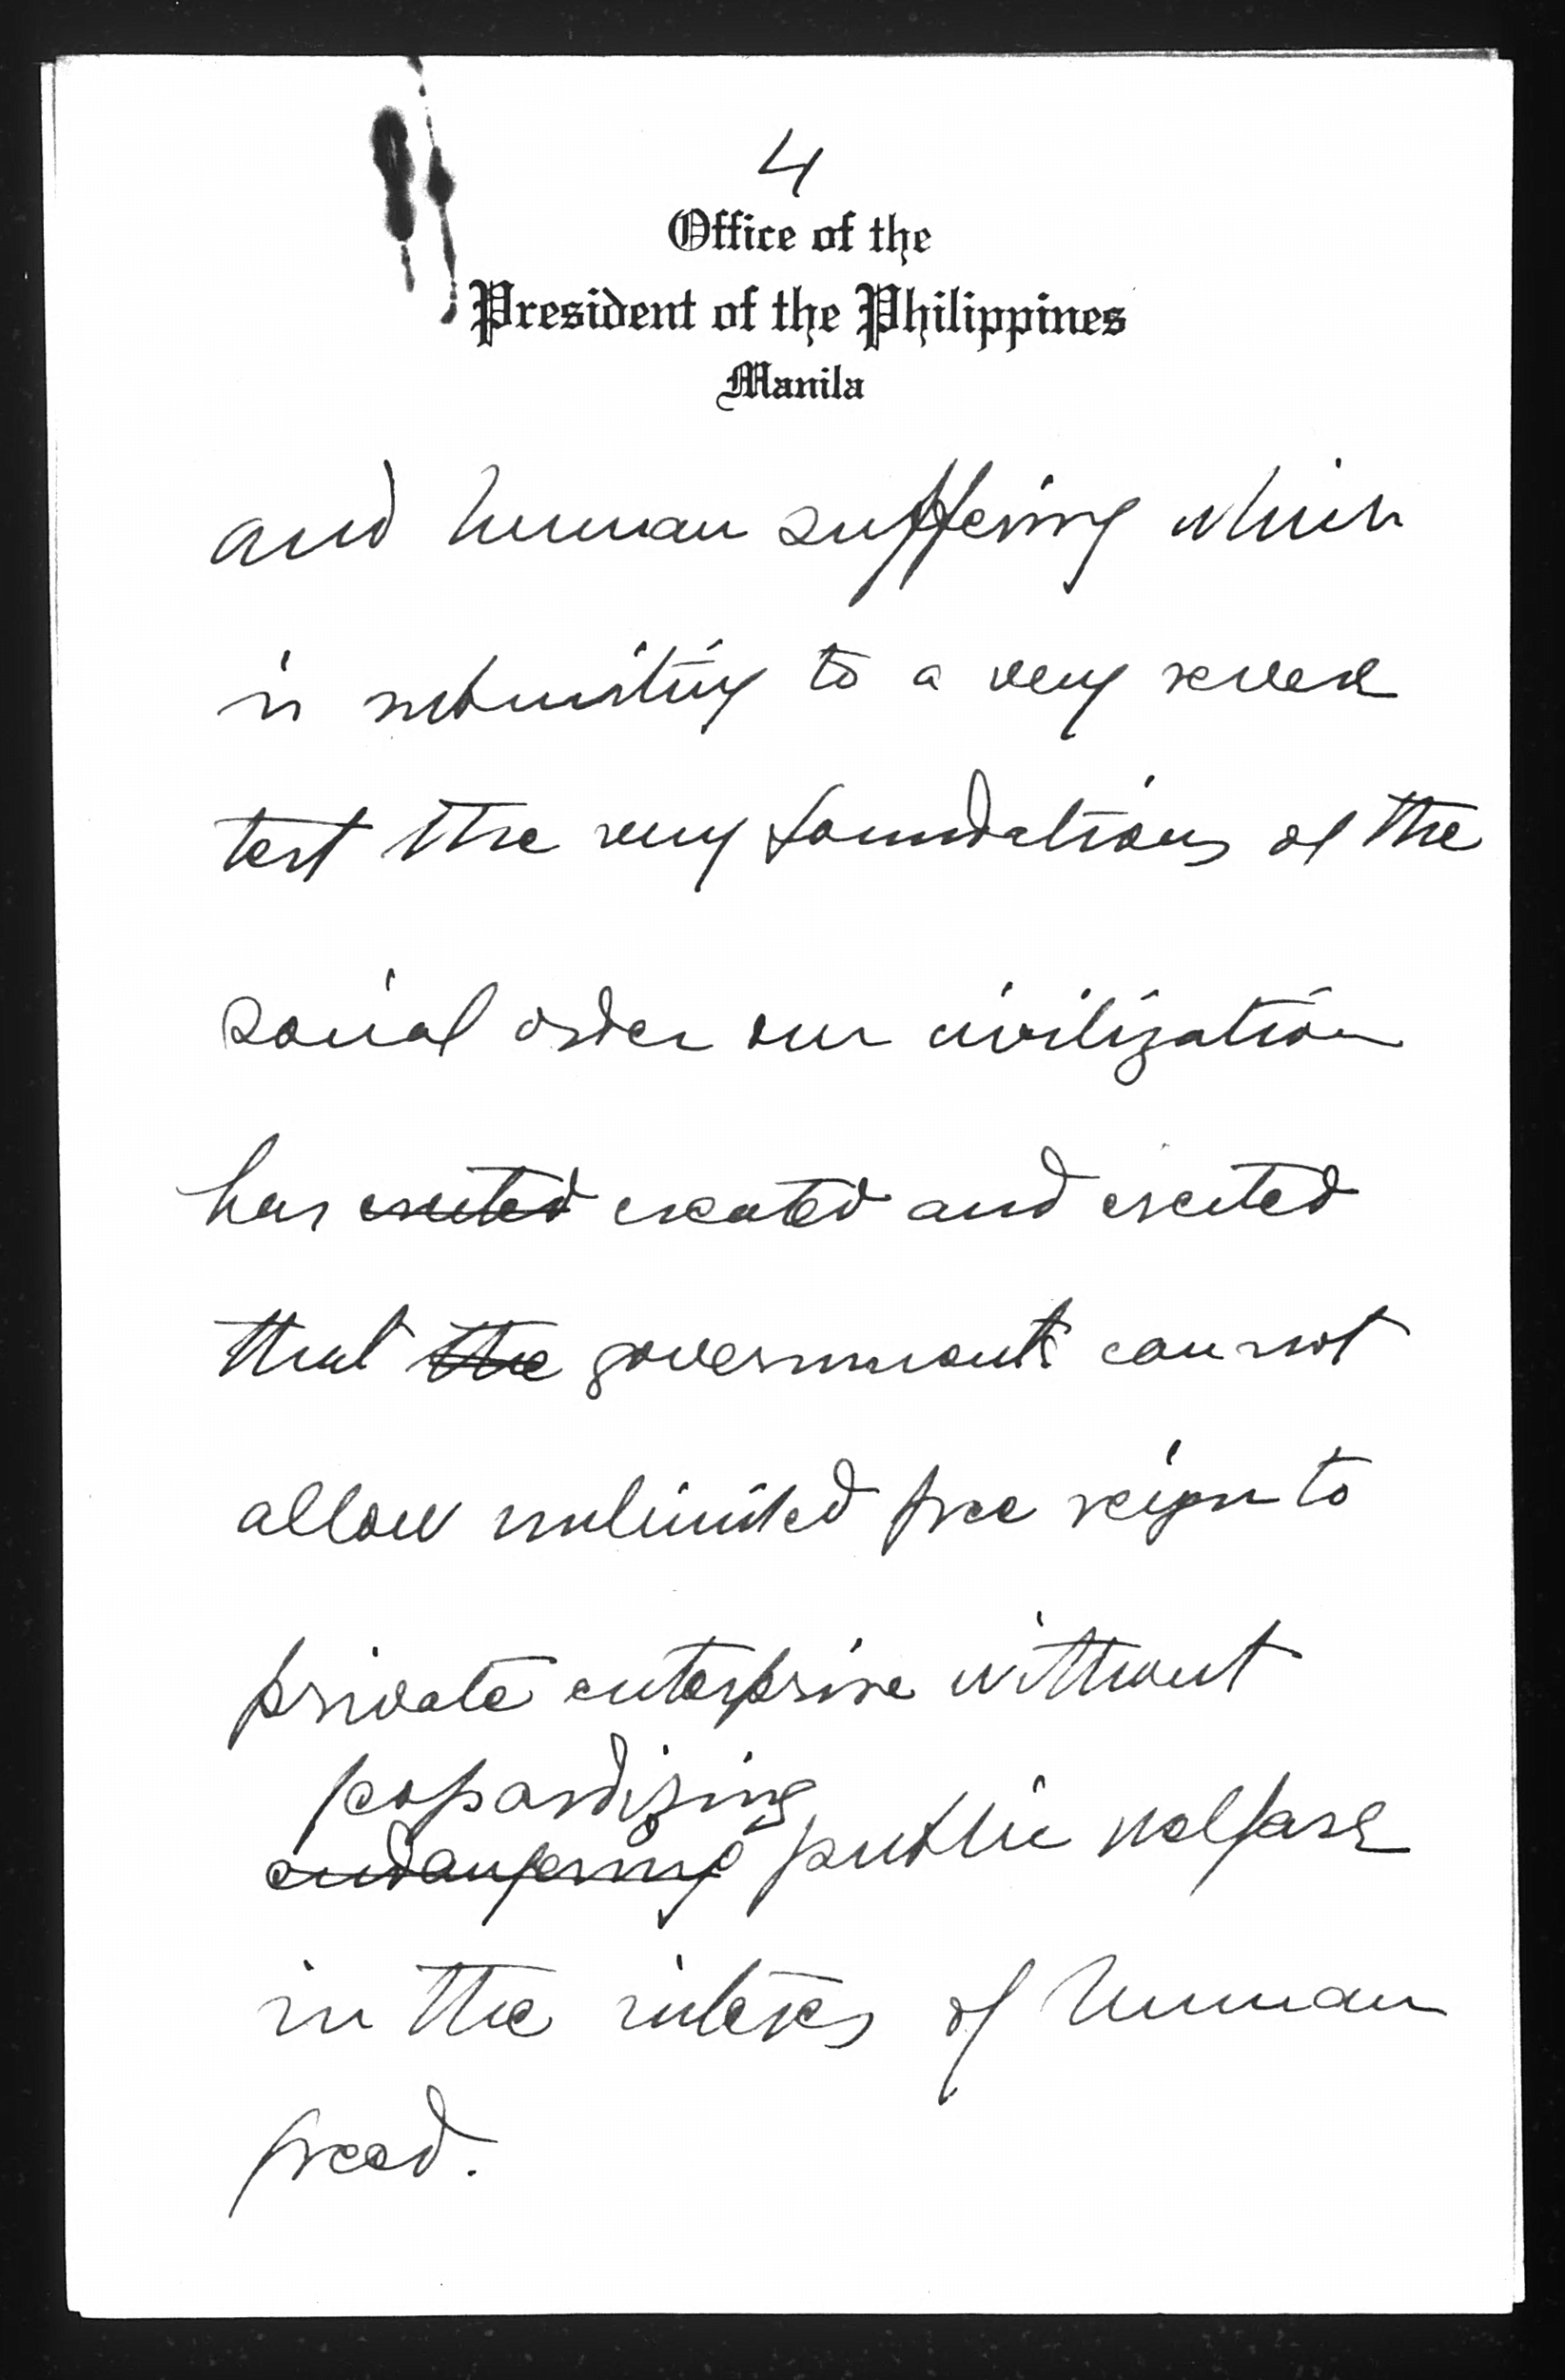 4
Office of the
President of the Philippines
Manila
and human suffering which
is submitting to a very severe
test the very foundations of the
social order our civilization
has created and erected
that governments can not
allow unlimited free reign to
private enterprise without
jeopardizing
endangering public welfare
in the of human